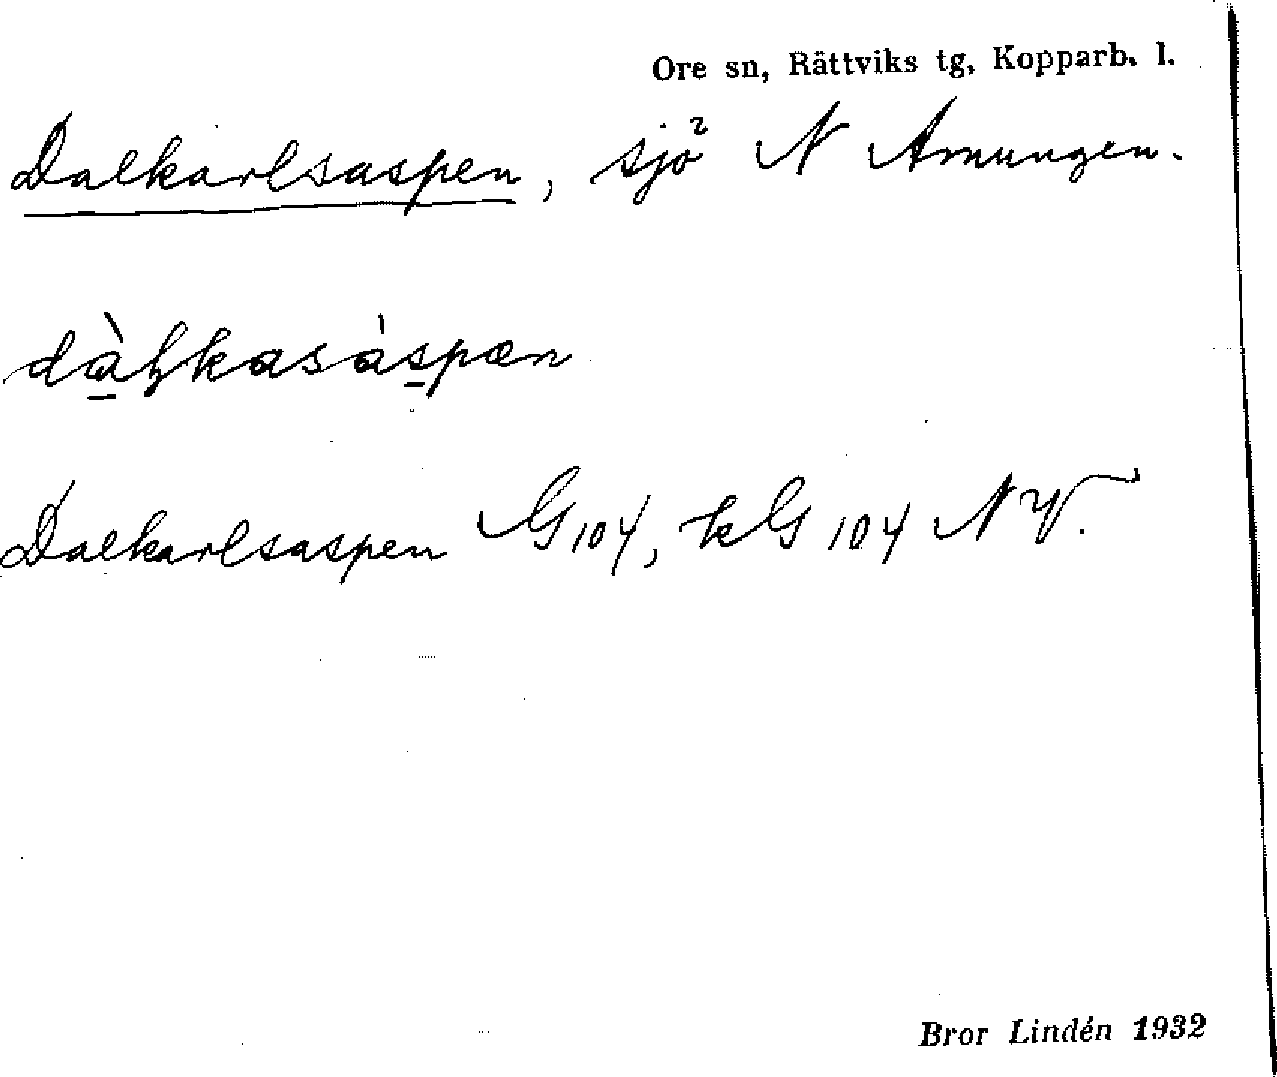 Ore sn, Rättviks tg, Kopparb. l.
Dalkarlsaspen, sjö N Amungen.
dàḷkasàspæn
Dalkarlsaspen G104, kG 104 NV.
Bror Lindén 1932